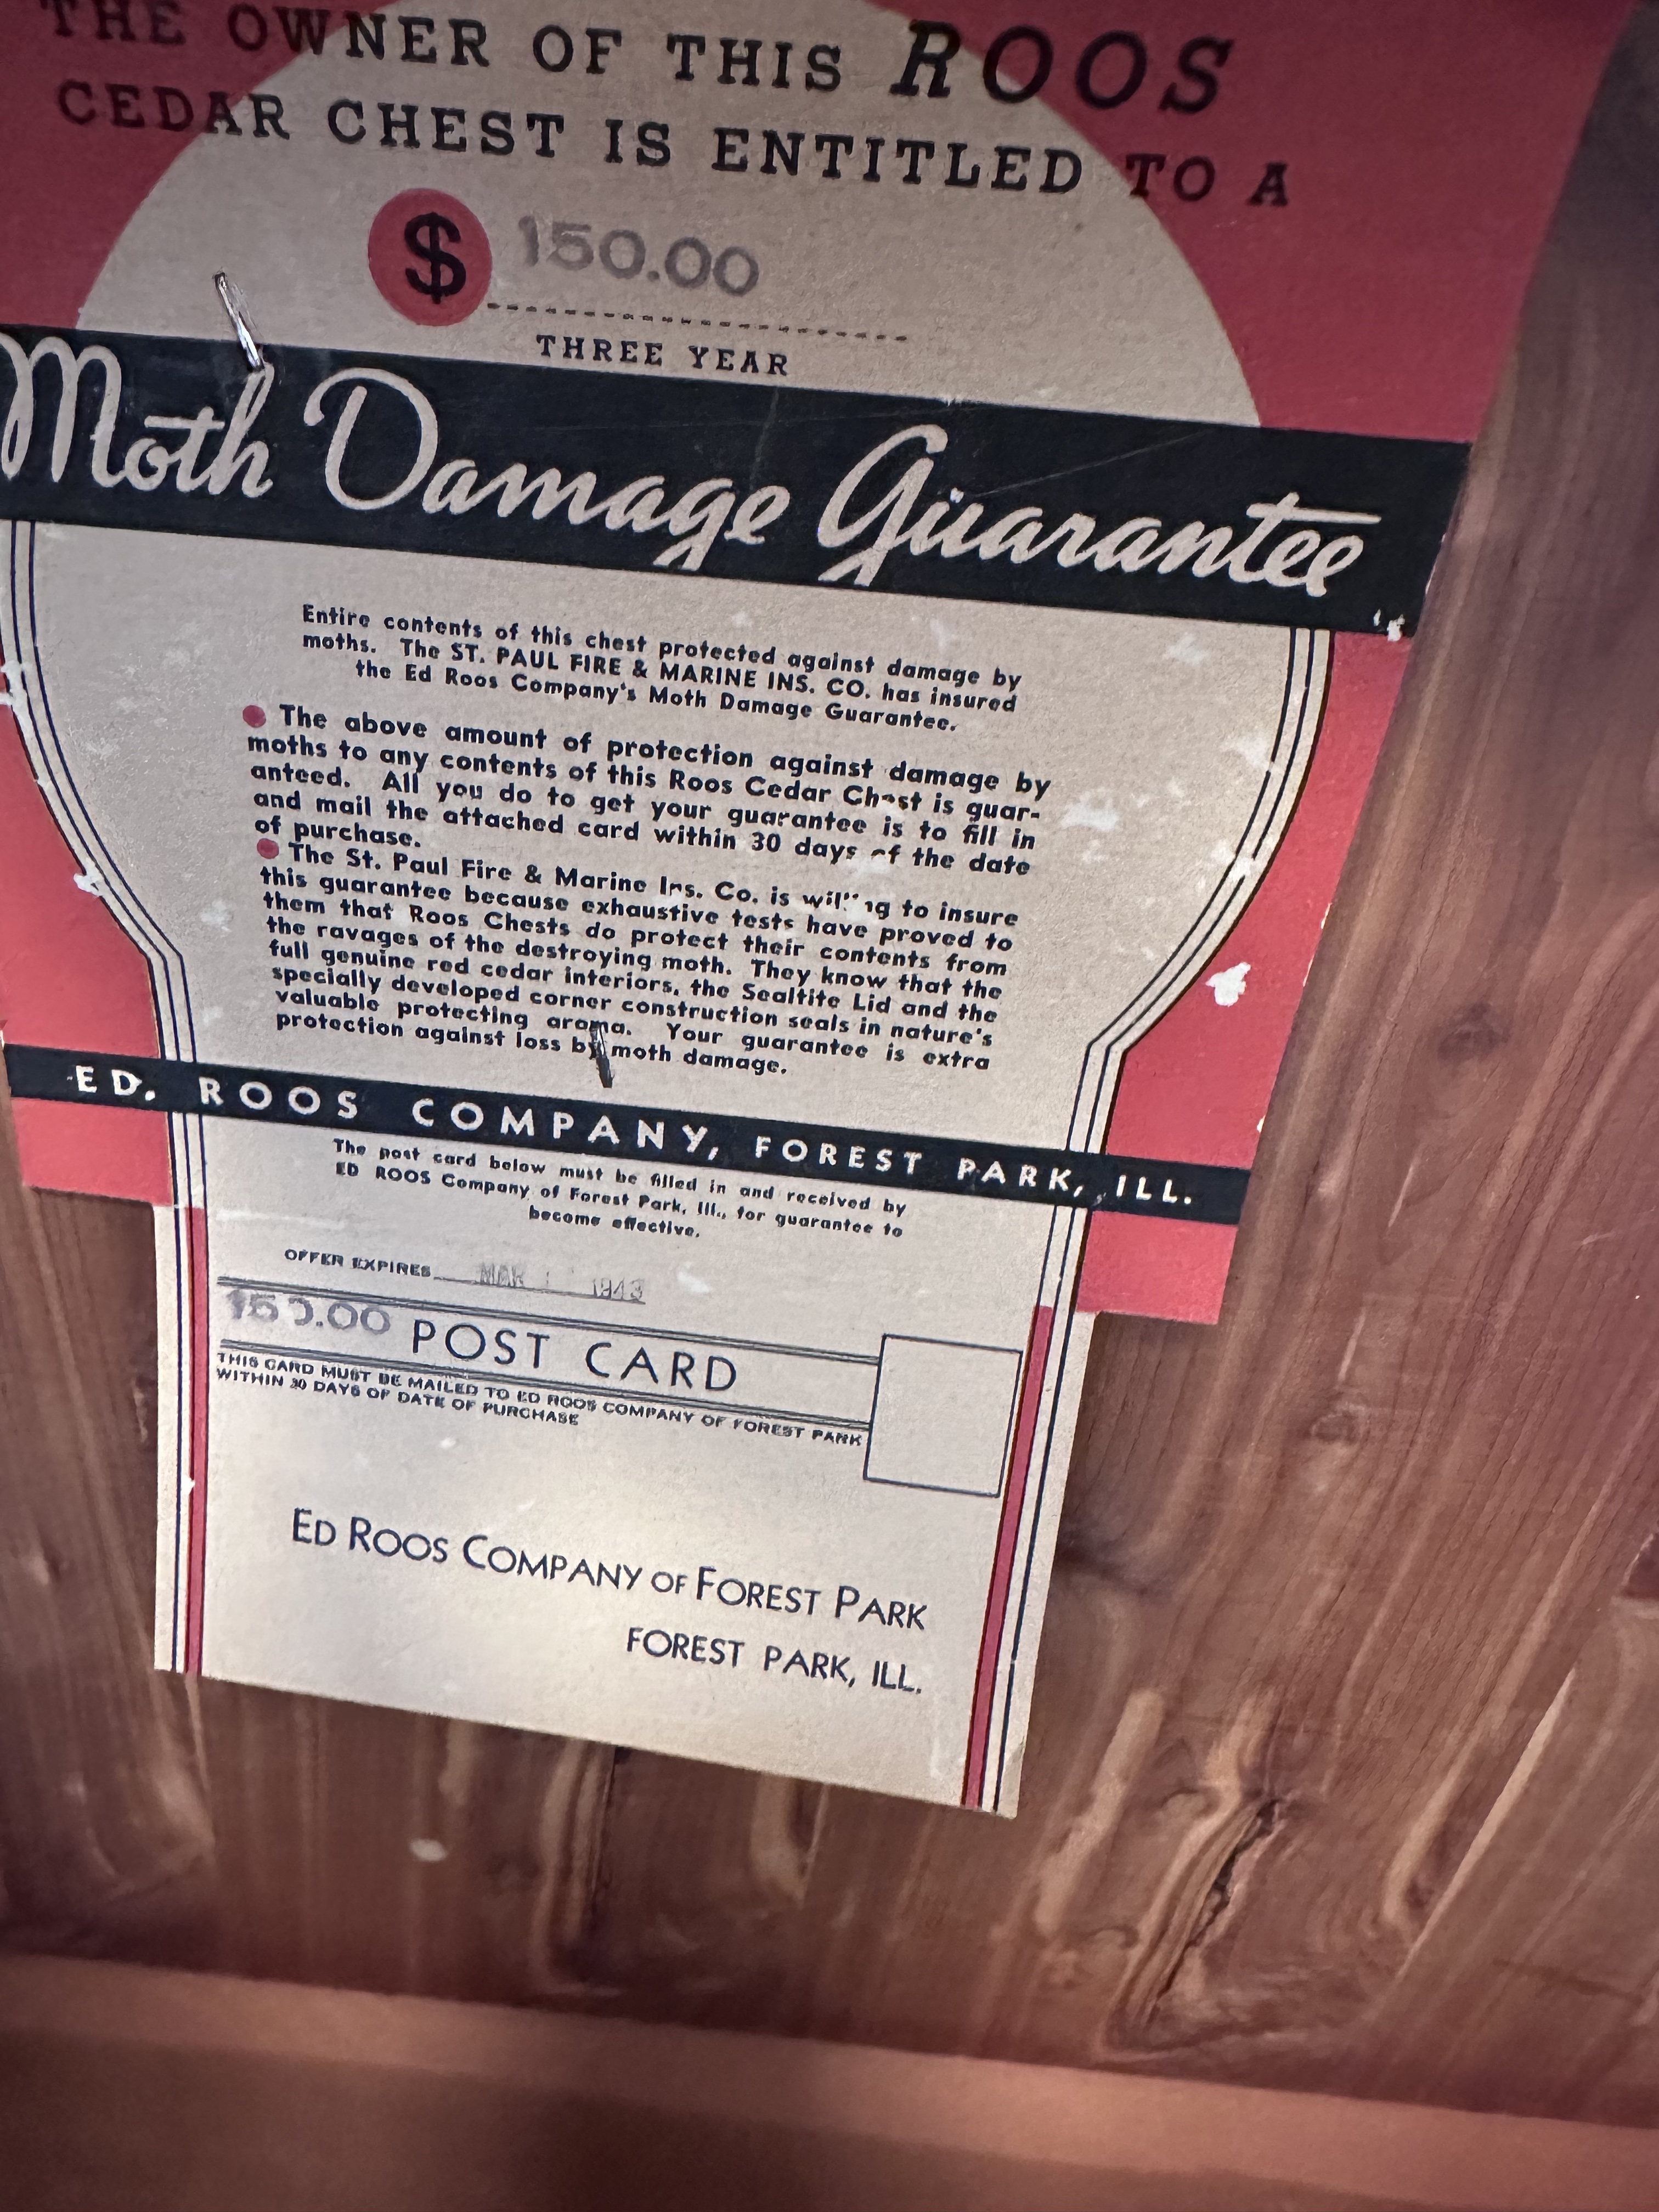 THE OWNER OF THIS ROOS
CEDAR CHEST IS ENTITLED TO A
$ 150.00
THREE YEAR
Moth Damage Guarantee
Entire contents of this chest protected against damage by
moths. The ST. PAUL FIRE & MARINE INS. CO. has insured
the Ed Roos Company's Moth Damage Guarantee.
The above amount of protection against damage by
moths to any contents of this Roos Cedar Chest is guar-
anteed. All you do to get your guarantee is to fill in
and mail the attached card within 30 days of the date
of purchase.
The St. Paul Fire & Marine Ins. Co. is willing to insure
this guarantee because exhaustive tests have proved to
them that Roos Chests do protect their contents from
the ravages of the destroying moth. They know that the
full genuine red cedar interiors, the Sealtite Lid and the
specially developed corner construction seals in nature's
valuable protecting aroma. Your guarantee is extra
protection against loss by moth damage.
ED. ROOS COMPANY, FOREST PARK, ILL.
The post card below must be filled in and received by
ED ROOS Company of Forest Park, Ill., for guarantee to
become effective.
OFFER EXPIRES MAR 1943
150.00 POST CARD
THIS CARD MUST BE MAILED TO ED ROOS COMPANY OF FOREST PARK
WITHIN 30 DAYS OF DATE OF PURCHASE
ED ROOS COMPANY OF FOREST PARK
FOREST PARK, ILL.